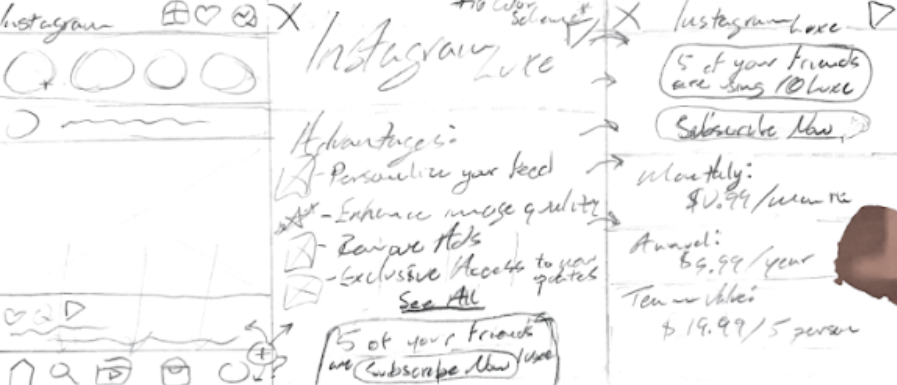 Instagram
#10 Color
Scheme*
Instagram
Luxe
Advantages:
- Personalize your feed
- Enhance image quality
- Remove Ads
- Exclusive Access to new
updates
See All
5 of your friends
are Luxe
Subscribe Now
Instagram Luxe
5 of your friends
are using IG Luxe
Subscribe Now
Monthly:
$0.99/month
Annual:
$9.99/year
$19.99/5 person